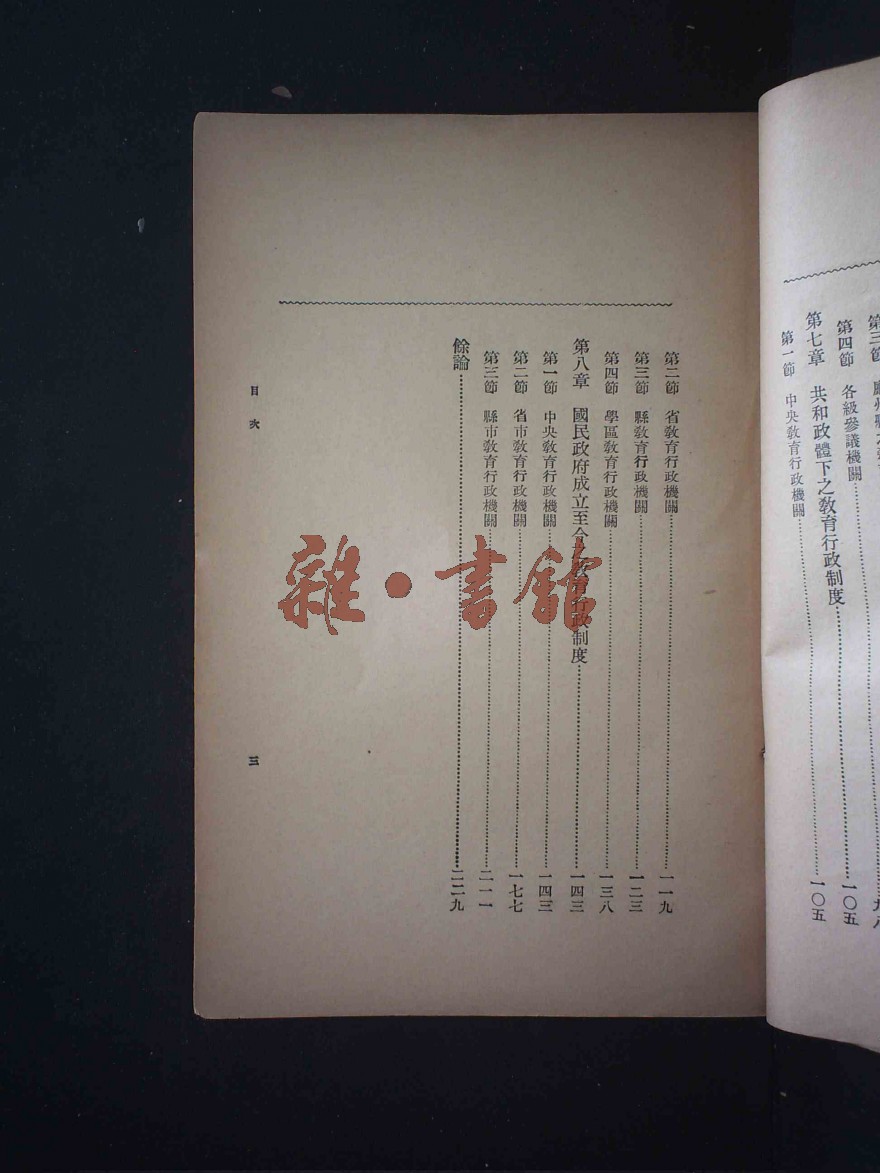 第四節　各級參議機關……一〇五
第七章　共和政體下之教育行政制度……一〇五
第一節　中央教育行政機關
第二節　省教育行政機關……一一九
第三節　縣教育行政機關……一二三
第四節　學區教育行政機關……一三八
第八章　國民政府成立至今之教育行政制度……一四三
第一節　中央教育行政機關……一四三
第二節　省市教育行政機關……一七七
第三節　縣市教育行政機關……二一一
餘論……二二九
目次
三
雜·書館